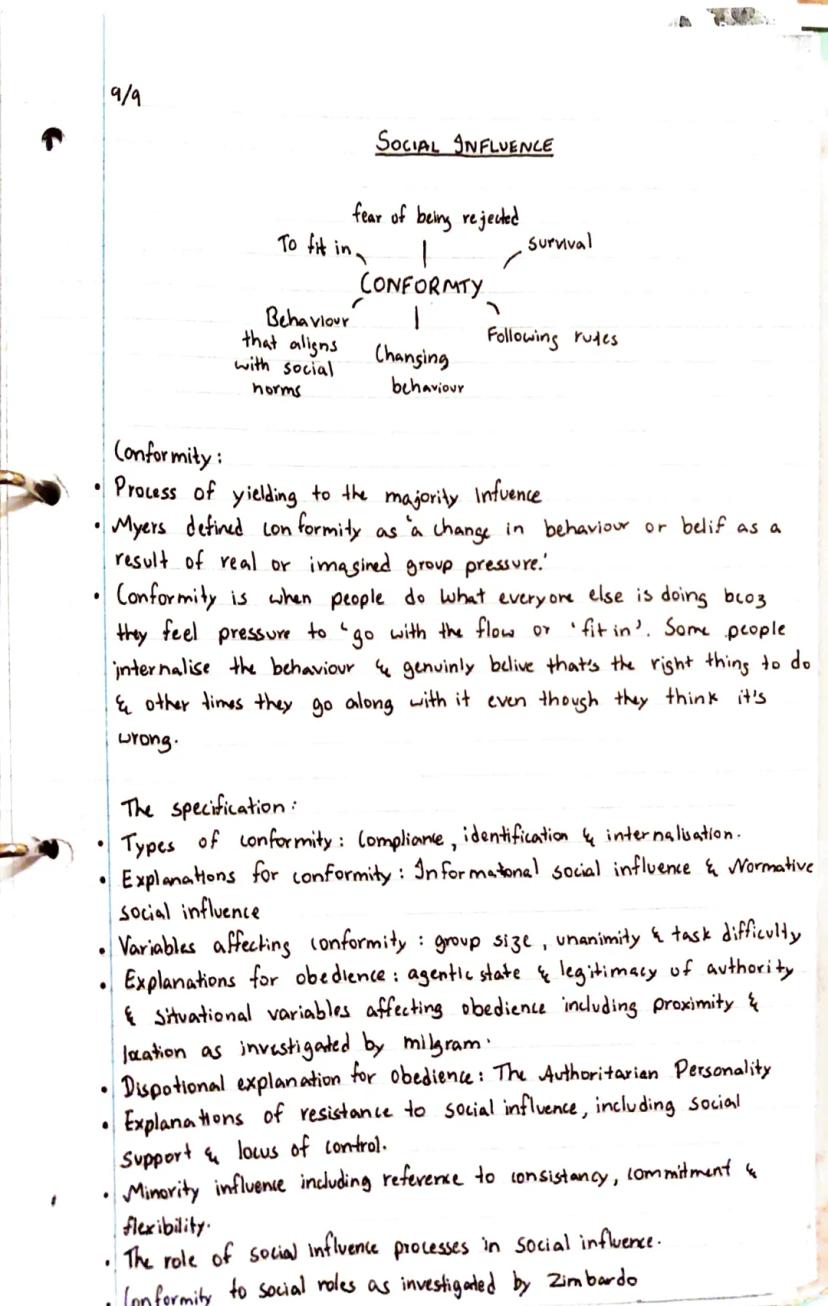 9/9
SOCIAL INFLUENCE
fear of being rejected
To fit in
survival
CONFORMTY
Behaviour
that aligns
with social
norms
Changing
behaviour
Following rules
Conformity:
• Process of yielding to the majority Infuence
• Myers defined conformity as 'a change in behaviour or belif as a
result of real or imagined group pressure.'
• Conformity is when people do what everyone else is doing bcoz
they feel pressure to 'go with the flow or 'fit in'. Some people
internalise the behaviour & genuinly belive that's the right thing to do
& other times they go along with it even though they think it's
wrong.
The specification:
• Types of conformity: compliance, identification & internalisation.
• Explanations for conformity: Informatonal social influence & Normative
social influence
• Variables affecting conformity: group size, unanimity & task difficulty
• Explanations for obedience: agentic state & legitimacy of authority
& situational variables affecting obedience including proximity &
location as investigated by milgram.
• Dispotional explanation for obedience: The Authoritarian Personality
• Explanations of resistance to social influence, including social
support & locus of control.
• Minority influence including reference to consistancy, commitment &
flexibility.
• The role of social influence processes in social influence.
• Conformity to social roles as investigated by Zimbardo